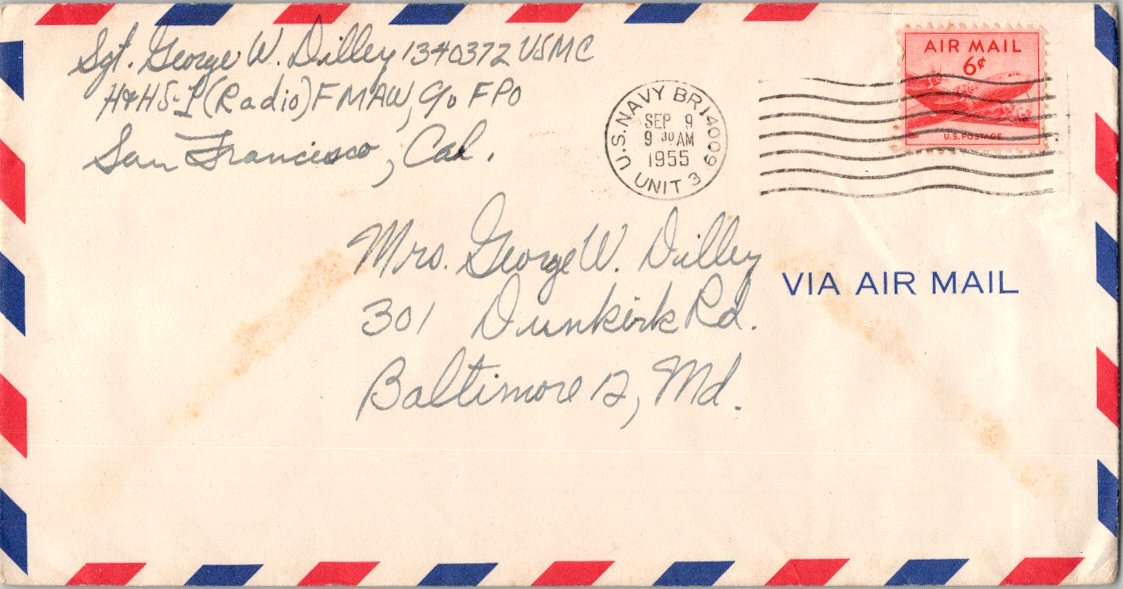 Sgt. George W. Dilley 1340372 USMC
H&HS-1 (Radio) FMAW, c/o FPO
San Francisco, Cal.
U.S. NAVY BR. 14009
SEP 9
9 30 AM
1955
UNIT 3
AIR MAIL
6¢
U.S. POSTAGE
Mrs. George W. Dilley
301 Dunkirk Rd.
Baltimore 12, Md.
VIA AIR MAIL